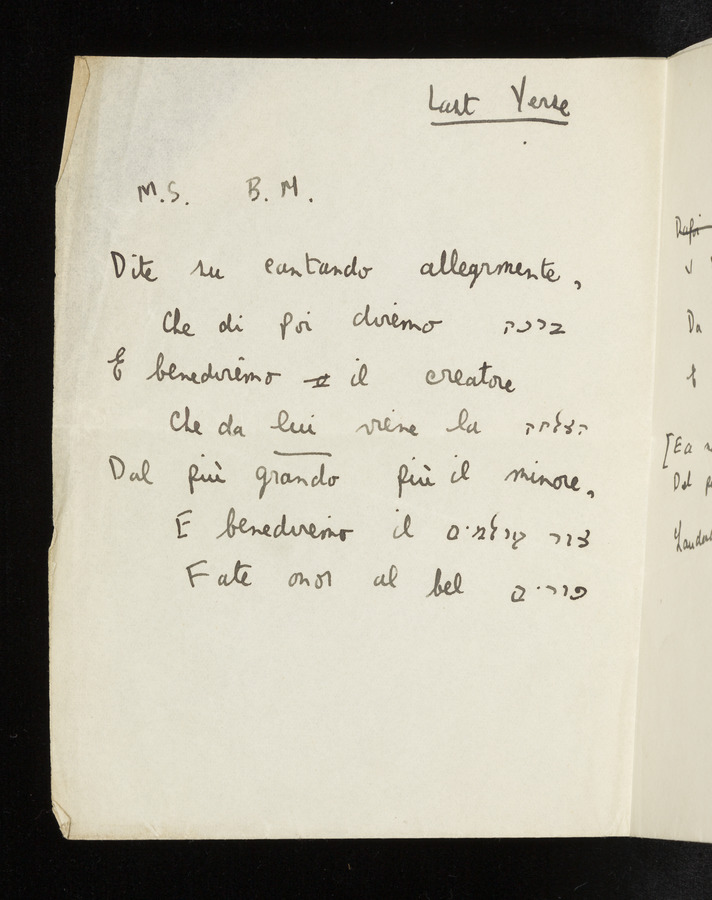 Last Verse
M.S. B.M.
Dite su cantando allegrmente,
Che di poi diremo ברכה
E benediremo il creatore
Che da lui viene la הצלחה
Dal più grando più il minore,
E benediremo il צור עולמים
Fate onor al bel פורים
Da
E
[Ea
Dal